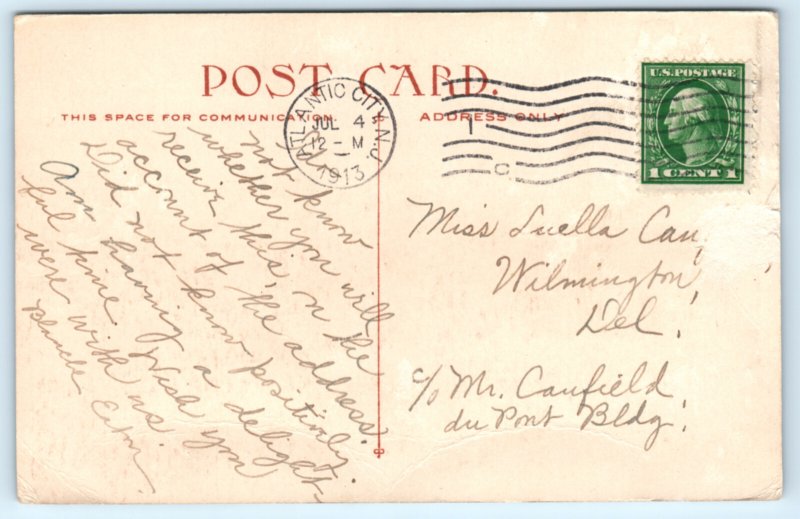 POST CARD.
THIS SPACE FOR COMMUNICATION
ADDRESS ONLY
ATLANTIC CITY, N.J.
JUL 4
12 - M
1913
1
C
U.S. POSTAGE
1 CENT 1
Do not know
whether you will
receive this, on the
account of the address.
Did not know positively.
Am having a delight-
ful time. Wish you
were with us
Blanche
Miss Luella Cau
Wilmington,
Del.
c/o Mr. Caufield
du Pont Bldg.